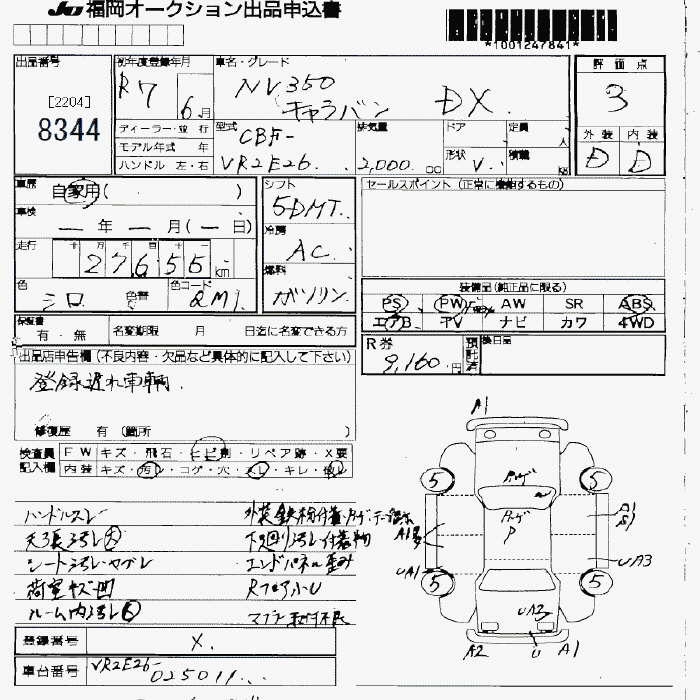 JU 福岡オークション出品申込書
*1001247841*
出品番号
[2204]
8344
初年度登録年月
R7 6月
車名・グレード
NV350
キャラバン DX.
評価点
3
外装 内装
D D
ディーラー・並行
モデル年式 年
ハンドル 左・右
型式
CBF-
VR2E26.
排気量
2,000. cc
ドア
形状 V.
定員 人
積載 kg
車歴
自家用( )
車検
— 年 — 月(— 日)
走行 十 万 千 百 十
27655 km
色
シロ
色替
色コード
QM1
シフト
5DMT.
冷房
AC
燃料
ガソリン
セールスポイント (正常に機能するもの)
装備品(純正品に限る)
PS PW AW SR ABS
エアB TV ナビ カワ 4WD
保証書
有・無
名変期限 月 日迄に名変できる方
R券
9,160.円
預託済
後日品
出品店申告欄(不良内容・欠品など具体的に記入して下さい)
登録遅れ車輌.
修復歴 有 (箇所 )
検査員
記入欄
FW キズ・飛石・ヒビ割・リペア跡・X要
内装 キズ・汚レ・コゲ・穴・スレ・キレ・
ハンドルスレ
天張汚レ大
シート汚レ
荷室キズ凹
ルーム内汚レ大
下回り汚レ付着物
エンドパネル歪み
A1
5 5
A1
A1
S1
UA1
UA3
5 5
UA2
A2 U A1
登録番号 X.
車台番号 VR2E26-
025011...